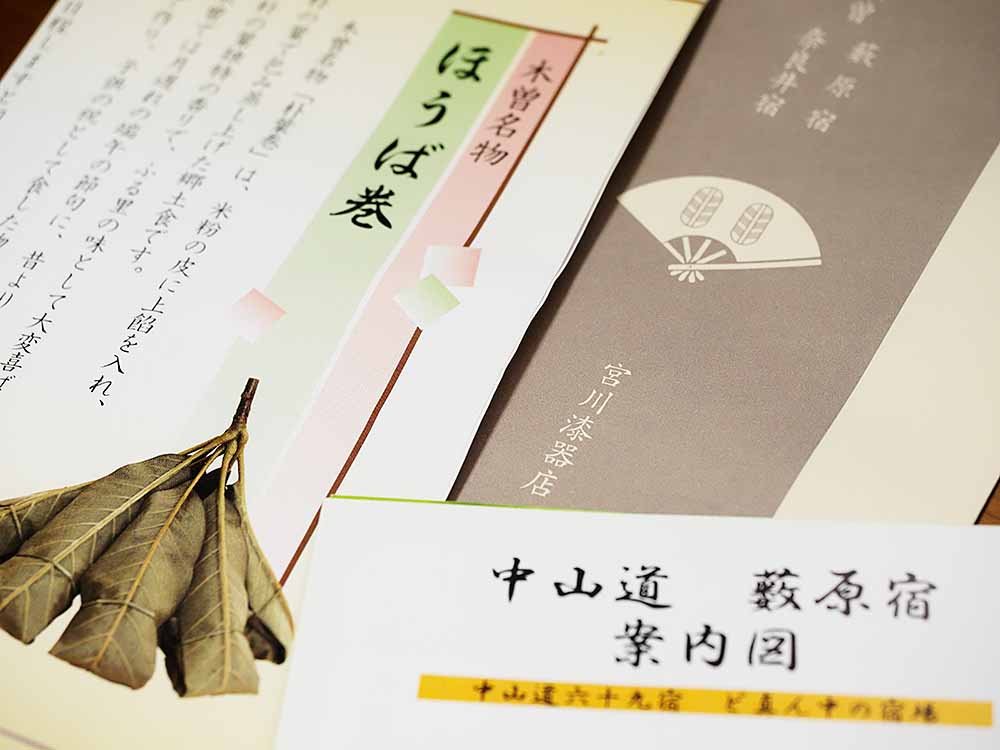 木曽名物
ほうば巻
木曽名物「朴葉巻」は、米粉の皮に上餡を入れ、
の葉で包み蒸し上げた郷土食です。
の葉独特の香りで、ふる里の味として大変喜ば
では月遅れの端午の節句に、昔より
作り、子供の祝として食した物
藪原宿
奈良井宿
宮川漆器店
中山道　藪原宿
案内図
中山道六十九宿　ど真ん中の宿場